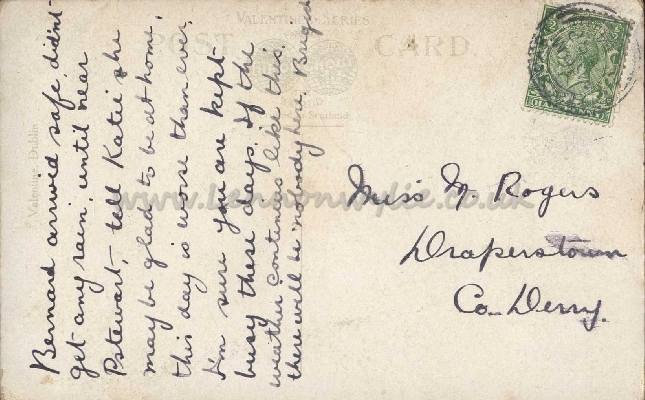 VALENTINE'S SERIES
POST CARD
Valentine, Dublin
Bernard arrived safe didnt
get any rain, until near
Pstewart,- tell Katie she
may be glad to be at home,
this day is worse than ever.
I'm sure you are kept
busy these days. If the
weather continues like this
there will be nobody here. Brigid
Miss M. Rogers
Draperstown
Co. Derry.
www.lennonwylie.co.uk